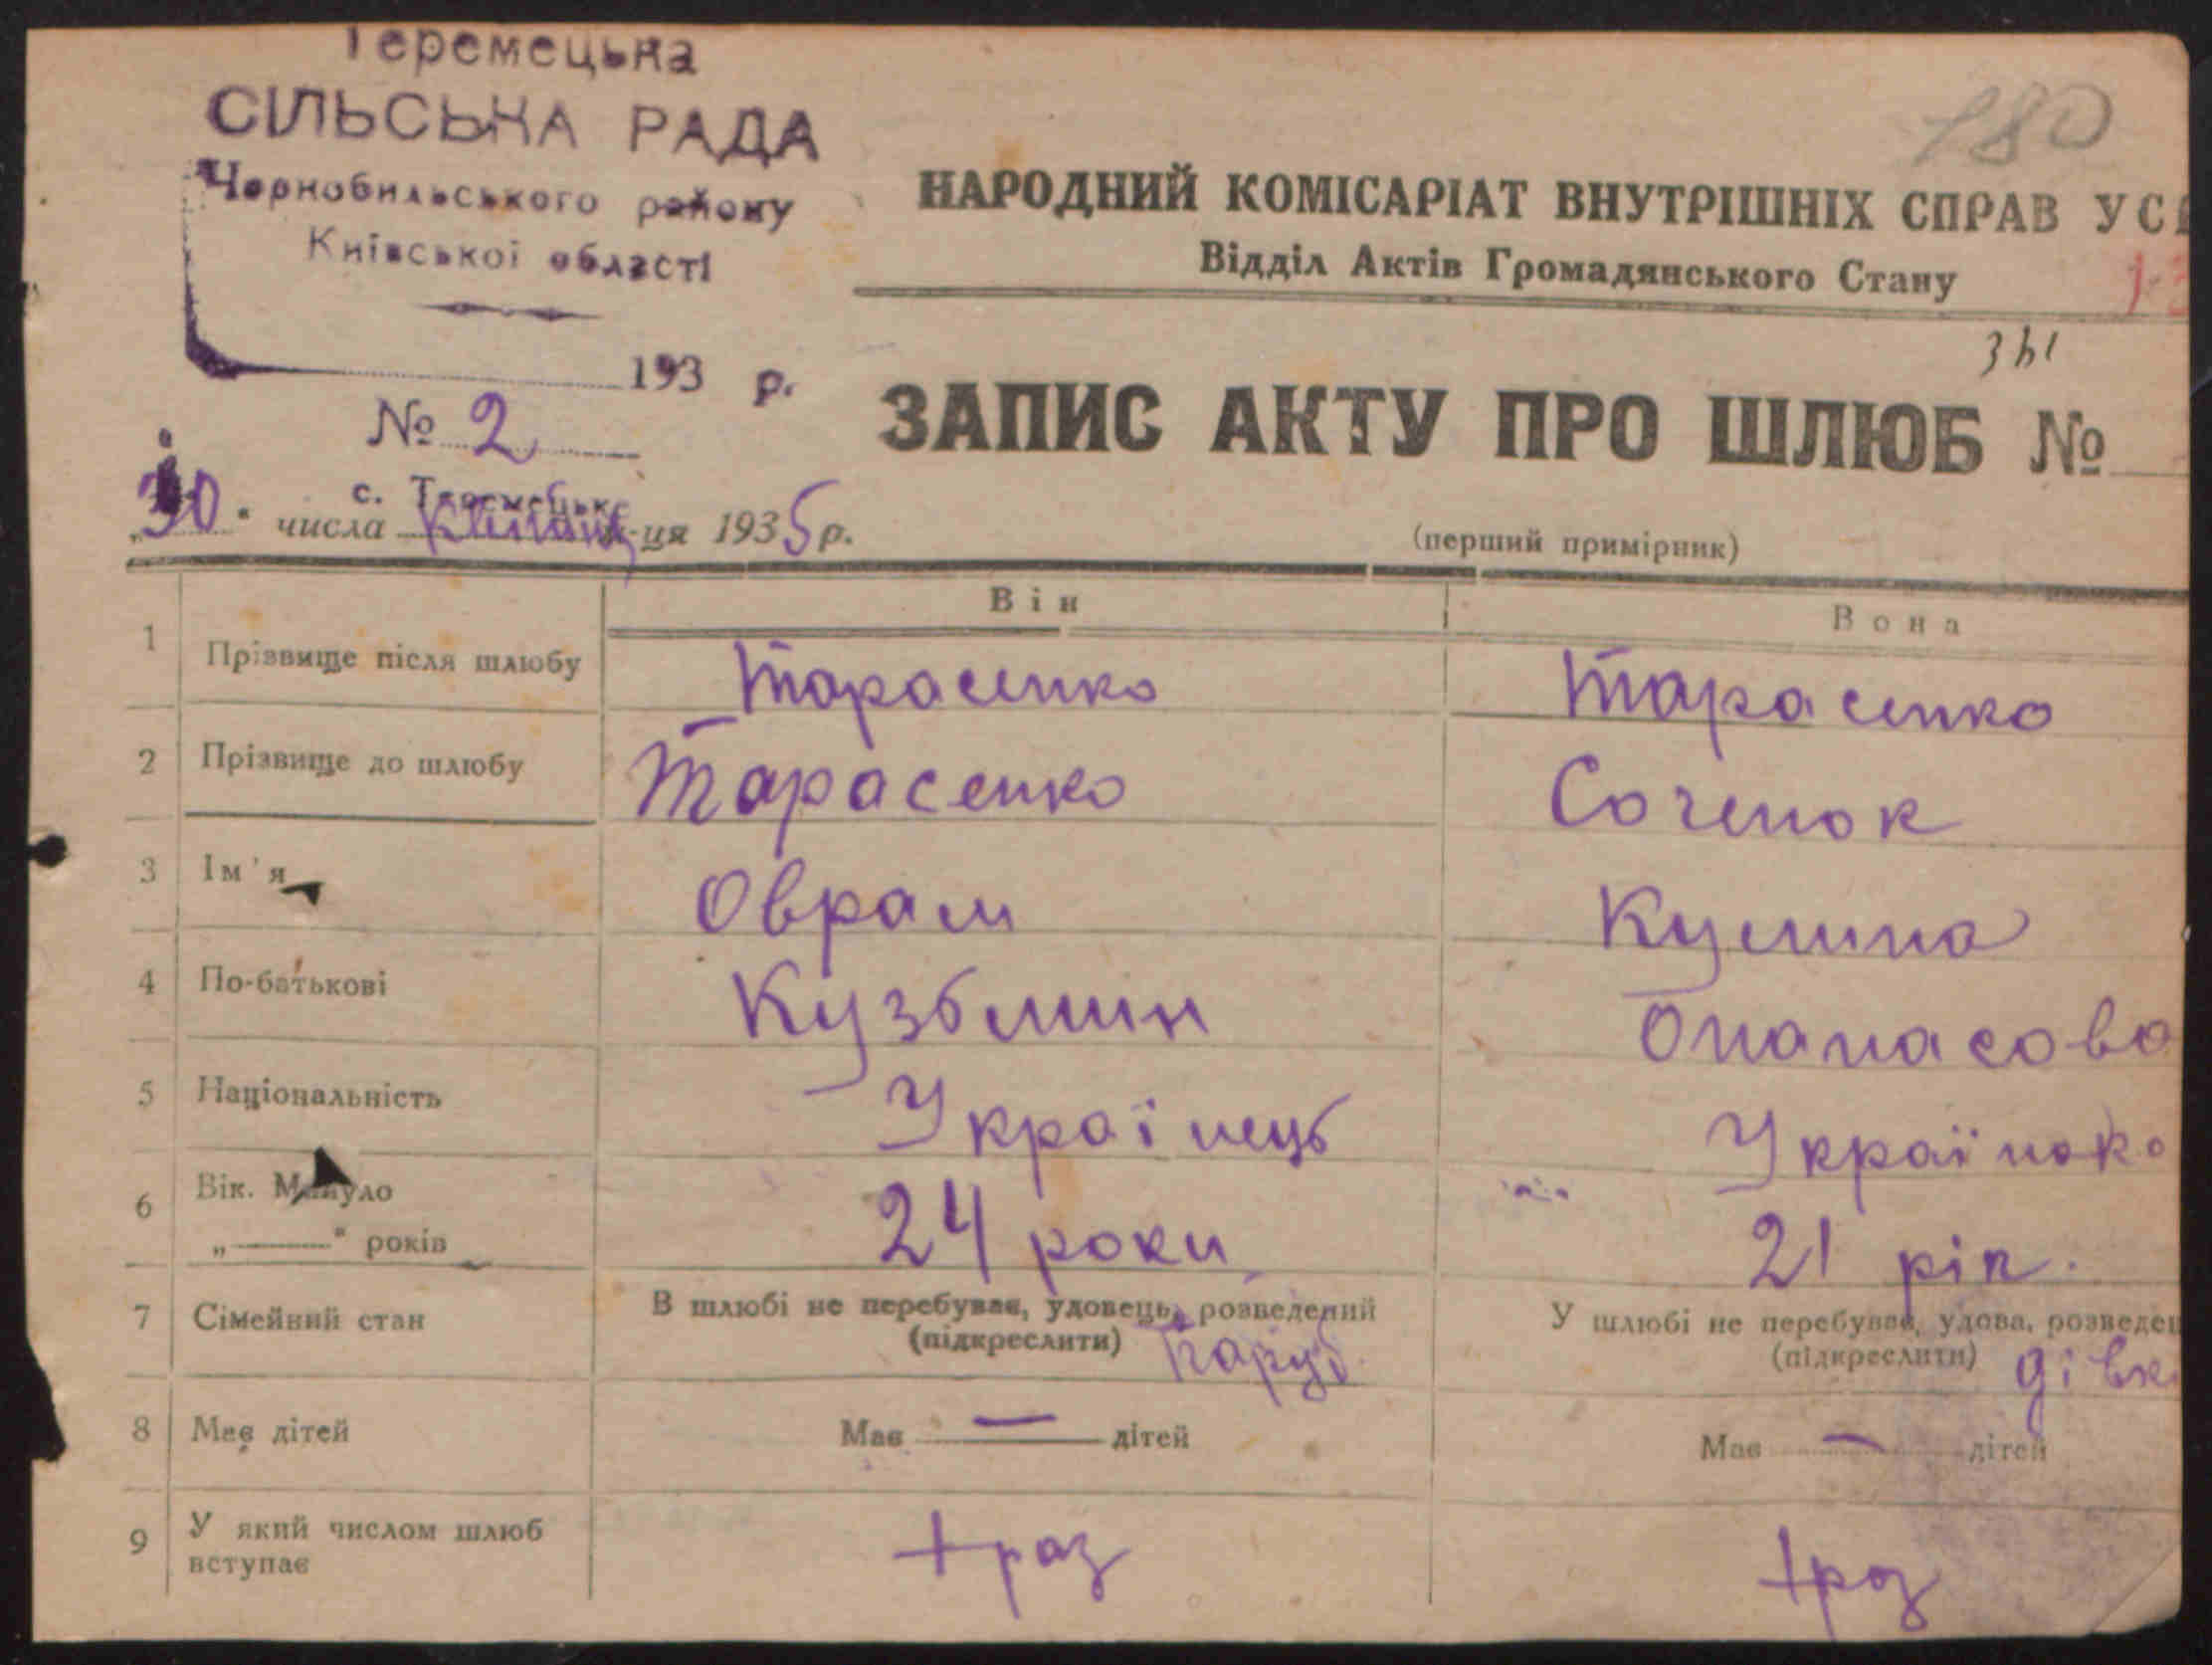 Теремецька
СІЛЬСЬКА РАДА
Чернобильського району
Київської області
180
НАРОДНИЙ КОМІСАРІАТ ВНУТРІШНІХ СПРАВ УС
Відділ Актів Громадянського Стану
193 р.
№ 2
341
ЗАПИС АКТУ ПРО ШЛЮБ №
с. Теремецьке
„30" числа м-ця 1935 р.
(перший примірник)
Він
Вона
1 Прізвище після шлюбу Тарасенко Тарасенко
2 Прізвище до шлюбу Тарасенко Соченок
3 Ім'я Оврам Кулина
4 По-батькові Кузьмин Опанасова
5 Національність Українець Українка
6 Вік. Минуло
„ " років 24 роки 21 рік.
7 Сімейний стан В шлюбі не перебуває, удовець, розведений
(підкреслити) Паруб
У шлюбі не перебуває, удова, розведен
(підкреслити) дівк
8 Має дітей Має — дітей Має — дітей
9 У який числом шлюб
вступає 1 раз 1 раз